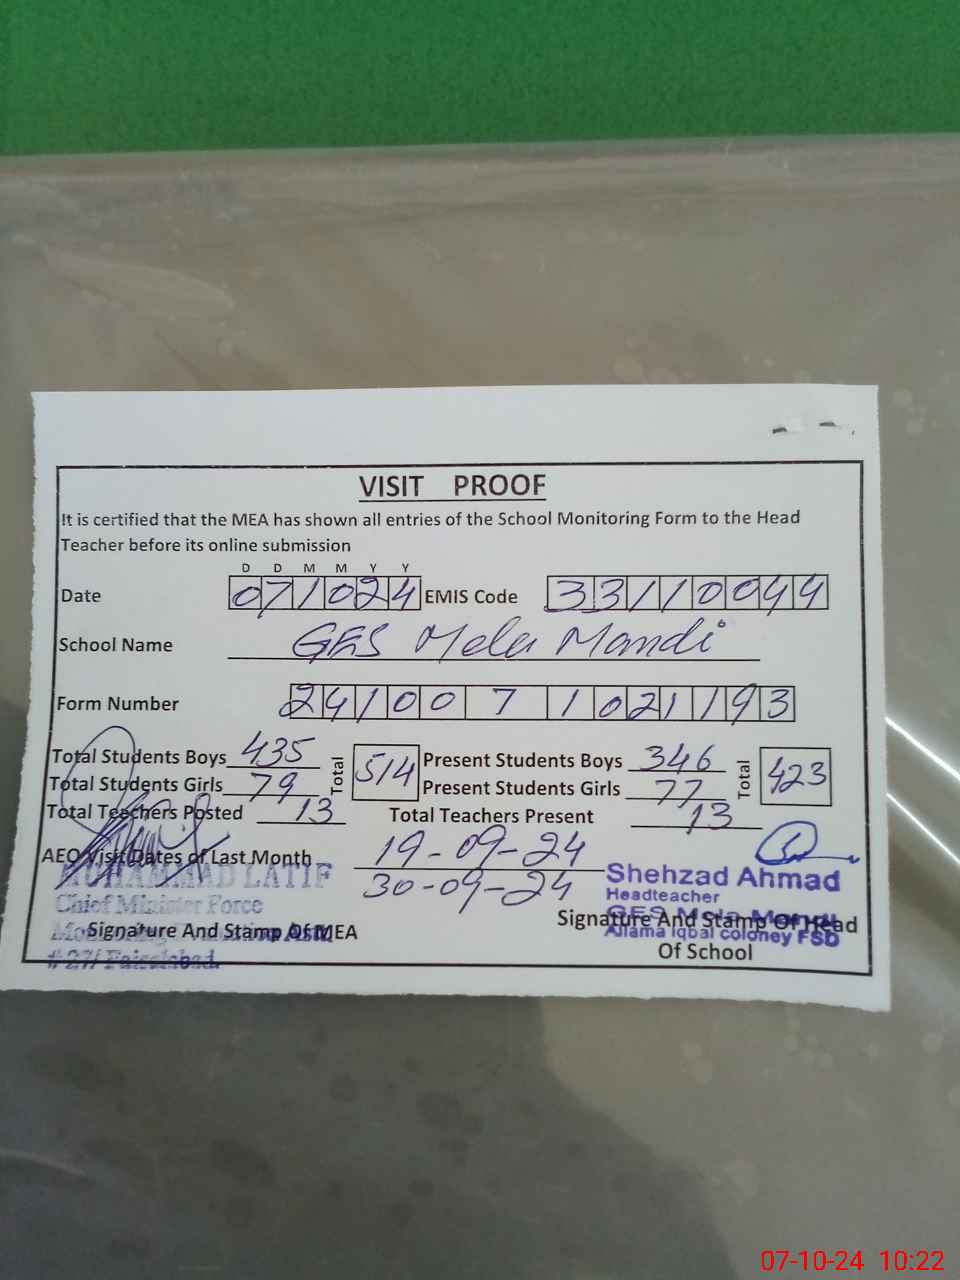 VISIT PROOF
It is certified that the MEA has shown all entries of the School Monitoring Form to the Head
Teacher before its online submission
D D M M Y Y
Date 071024 EMIS Code 33110044
School Name GES Mela Mandi
Form Number 24100 7 1021193
Total Students Boys 435 Total 514 Present Students Boys 346 Total 423
Total Students Girls 79 Present Students Girls 77
Total Teachers Posted 13 Total Teachers Present 13
AEO Visit Dates of Last Month 19-09-24
30-09-24
MUHAMMAD LATIF
Chief Minister Force
# 27/ Faisalabad.
Signature And Stamp Of MEA
Shehzad Ahmad
Headteacher
GES Mela Mandi
Allama Iqbal coloney FSD
Signature And Stamp Of Head
Of School
07-10-24 10:22